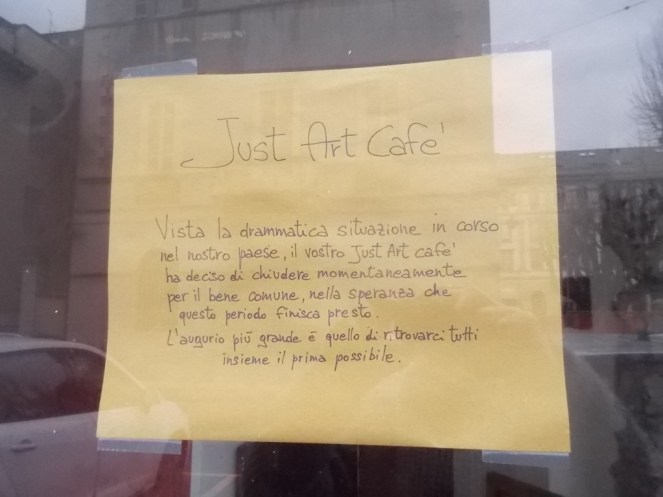 Just Art Cafe'
Vista la drammatica situazione in corso
nel nostro paese, il vostro Just Art cafe'
ha deciso di chiudere momentaneamente
per il bene comune, nella speranza che
questo periodo finisca presto.
L'augurio più grande è quello di ritrovarci tutti
insieme il prima possibile.